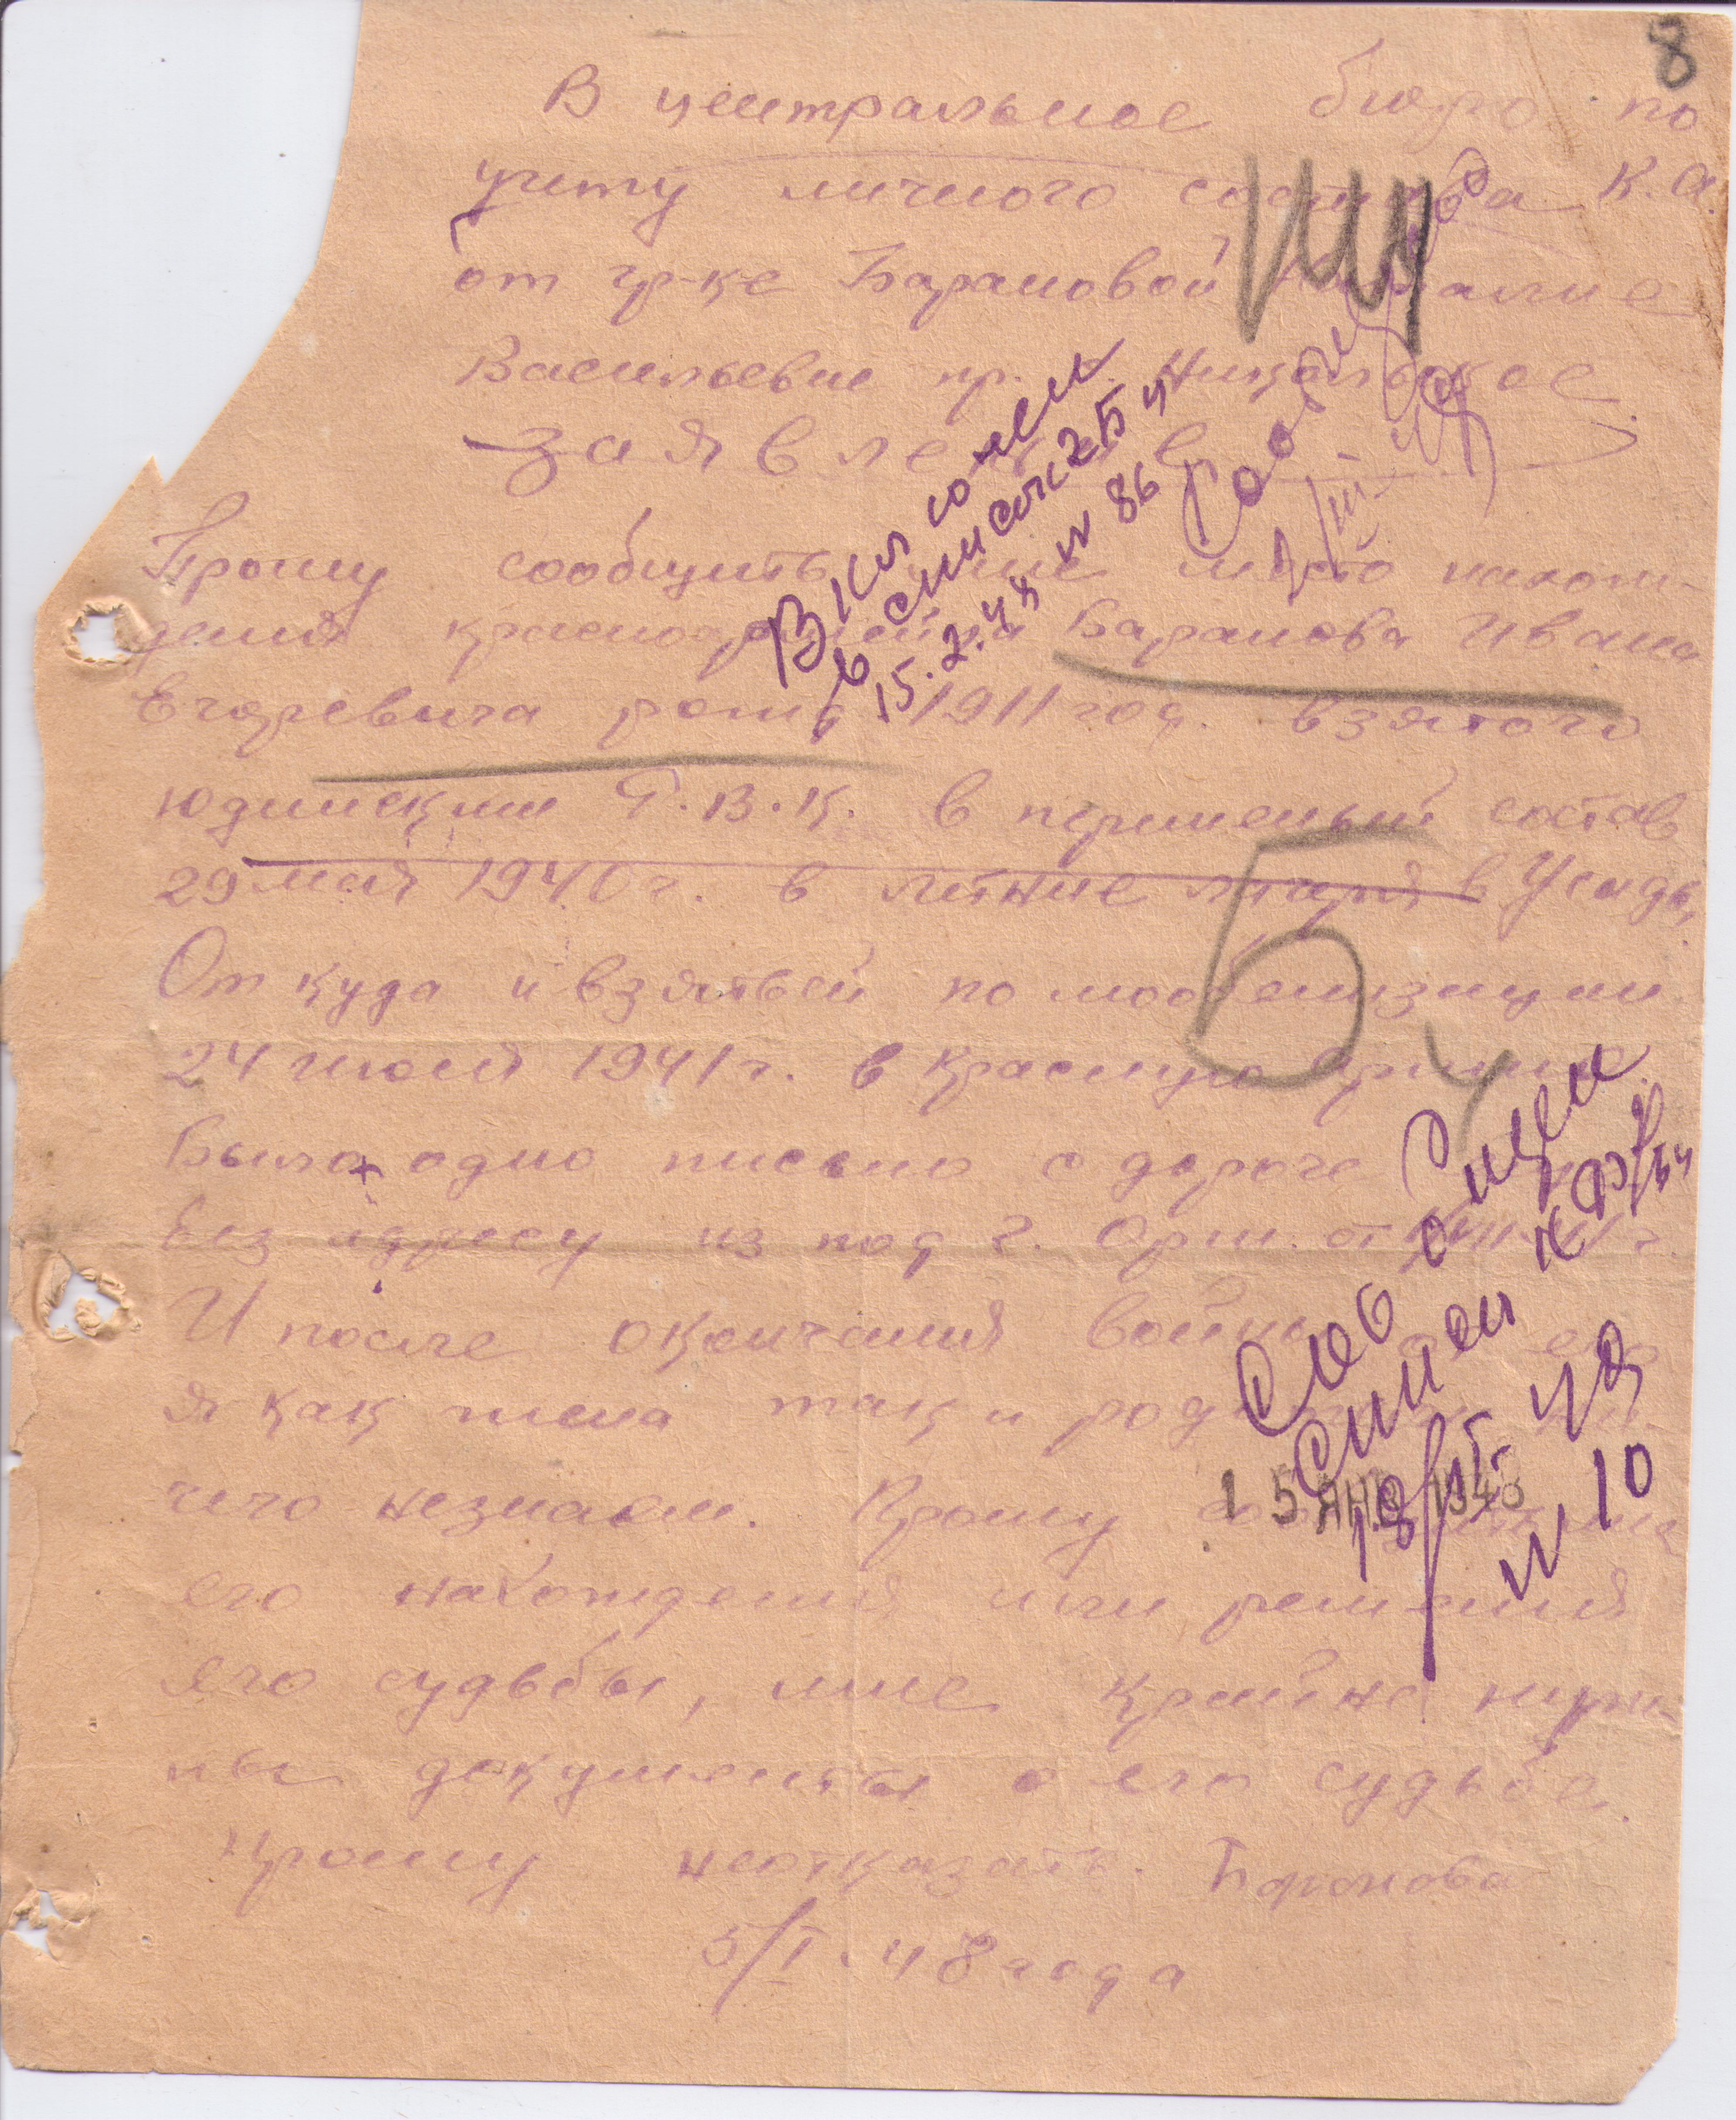 8
В центральное бюро по
учету личного состава К.А.
от гр-ке Барановой
Васильевне пр. Никольское
заявление
Прошу сообщить мне место нахож-
дения красноармейца Баранова Ивана
Егоревича рожд 1911 год. взятого
Юдинским Р.В.К. в перменый состав
29 мая 1940 г. в летние лагеря в Усады,
От куда и взятый по мообелизации
24 июля 1941 г. в красную армию.
Было одно письмо с дороге
без адресу из под г. Орш. от
И после окончания войны о его
я как жена так и родители ни-
чего незнаем. Прошу
его нахождения или решения
его судьбы, мне крайне нуж-
ны документы о его судьбе.
Прошу неотказать. Баранова
5/I-48 года
Включен
в список 2 Бч
15.2.48 N 86
Бч
15 ЯНВ 1948
N 10